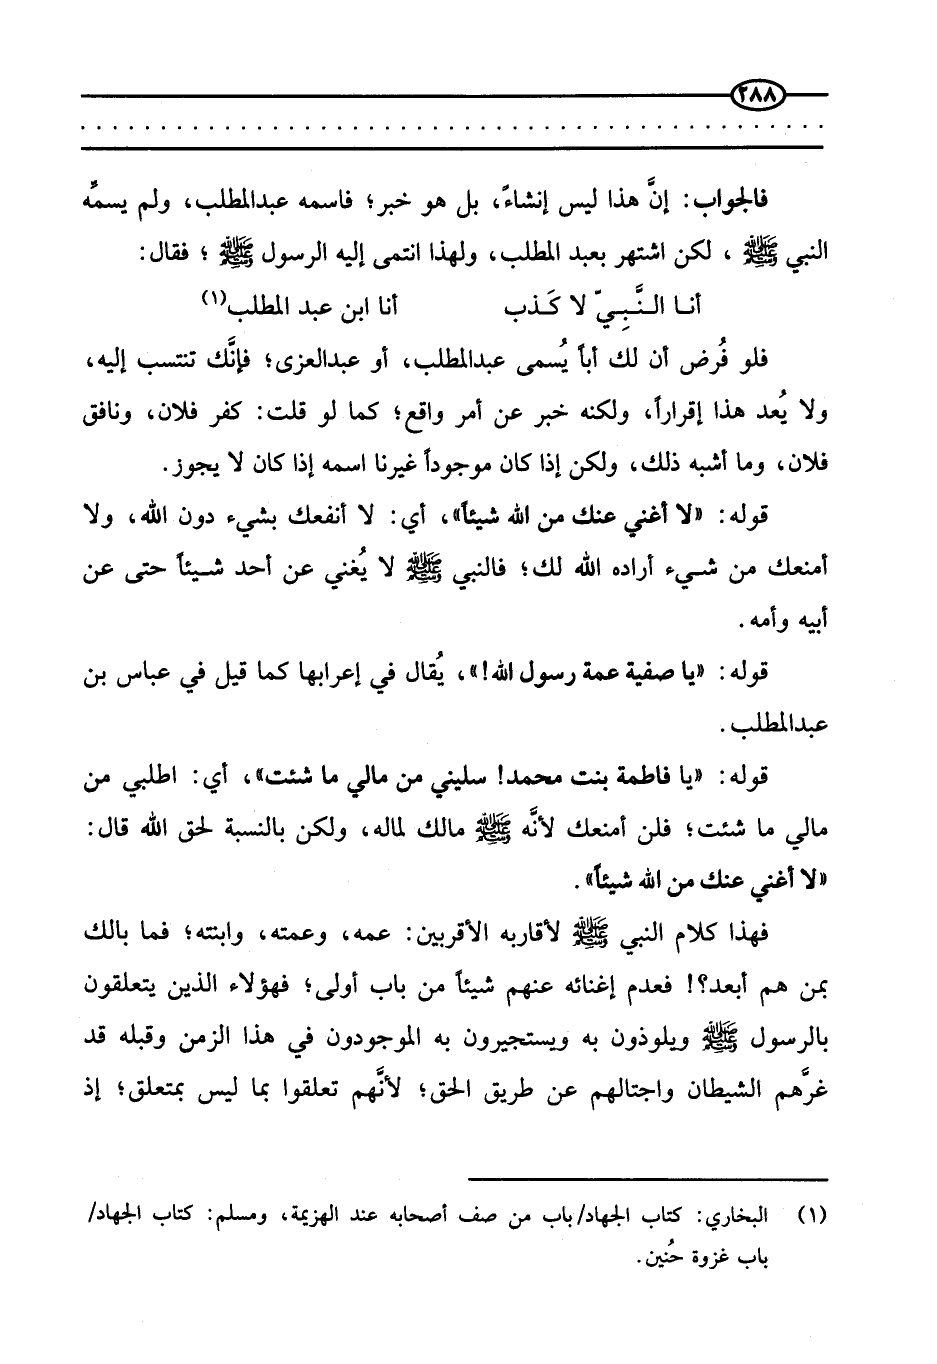 ٢٨٨
فالجواب: إنَّ هذا ليس إنشاءً، بل هو خبر؛ فاسمه عبدالمطلب، ولم يسمِّه
النبي ﷺ ، لكن اشتهر بعبد المطلب، ولهذا انتمى إليه الرسول ﷺ ؛ فقال:
أنــا الـنَّـبِـيّ لا كَـذب أنا ابن عبد المطلب(١)
فلو فُرض أن لك أباً يُسمى عبدالمطلب، أو عبدالعزى؛ فإنَّك تنتسب إليه،
ولا يُعد هذا إقراراً، ولكنه خبر عن أمر واقع؛ كما لو قلت: كفر فلان، ونافق
فلان، وما أشبه ذلك، ولكن إذا كان موجوداً غيرنا اسمه إذا كان لا يجوز.
قوله: «لا أغني عنك من الله شيئاً»، أي: لا أنفعك بشيء دون الله، ولا
أمنعك من شـيء أراده الله لك؛ فالنبي ﷺ لا يُغني عن أحد شـيئاً حتى عن
أبيه وأمه.
قوله: «يا صفية عمة رسول الله!»، يُقال في إعرابها كما قيل في عباس بن
عبدالمطلب.
قوله: «يا فاطمة بنت محمد! سليني من مالي ما شئت»، أي: اطلبي من
مالي ما شئت؛ فلن أمنعك لأنَّه ﷺ مالك لماله، ولكن بالنسبة لحق الله قال:
«لا أغني عنك من الله شيئاً».
فهذا كلام النبي ﷺ لأقاربه الأقربين: عمه، وعمته، وابنته؛ فما بالك
بمن هم أبعد؟! فعدم إغنائه عنهم شيئاً من باب أولى؛ فهؤلاء الذين يتعلقون
بالرسول ﷺ ويلوذون به ويستجيرون به الموجودون في هذا الزمن وقبله قد
غرَّهم الشيطان واجتالهم عن طريق الحق؛ لأنَّهم تعلقوا بما ليس بمتعلق؛ إذ
(١) البخاري: كتاب الجهاد/ باب من صف أصحابه عند الهزيمة، ومسلم: كتاب الجهاد/
باب غزوة حُنين.